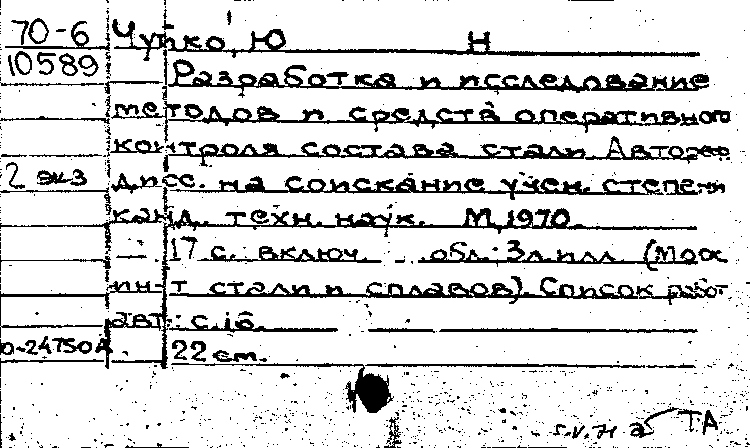 70-6 Чупко, Ю Н
10589 Разработка и исследование
методов и средств оперативного
контроля состава стали. Автореф
2 экз дисс. на соискание учен. степени
канд. техн. наук. М, 1970.
17 с. включ. обл.: 3л. илл. (Моск
ин-т стали и сплавов). Список работ
авт.: с.16.
0-24750А 22 см.
ТА